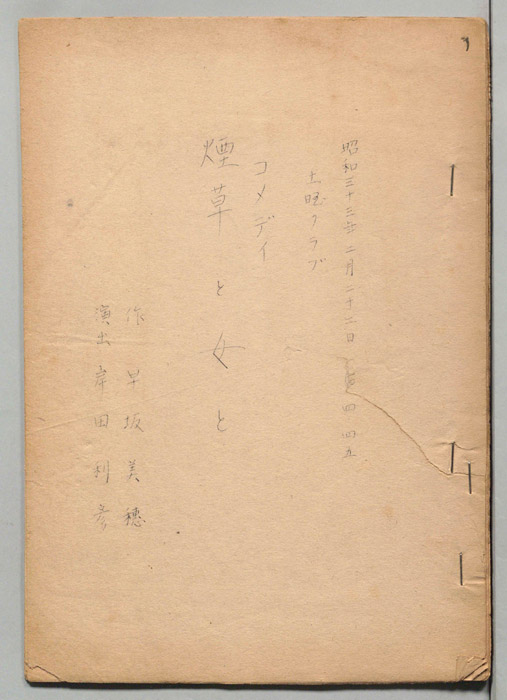 昭和三十三年二月二十二日 四 四五
土曜クラブ
コメディ
煙草と女と
作 早坂美穂
演出 岸田利彦